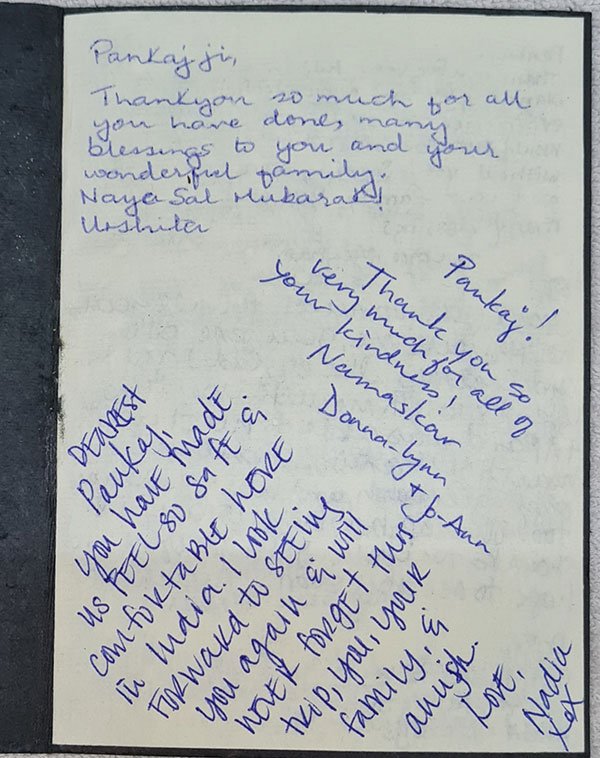 Pankaj ji,
Thankyou so much for all
you have done, many
blessings to you and your
wonderful family.
Naya Sal Mubarak!
Urshita
Pankaj!
Thank you so
very much for all of
your kindness!
Namaskar
Donna-Lynn
+ Jo-Ann
DEAREST
Pankaj,
you HAVE MADE
US FEEL SO SAFE &
COMFORTABLE HERE
IN India. I LOOK
FORWARD TO SEEING
you again & will
NEVER FORGET this
trip, you, your
family, &
anvish.
Love,
Nadia
xox